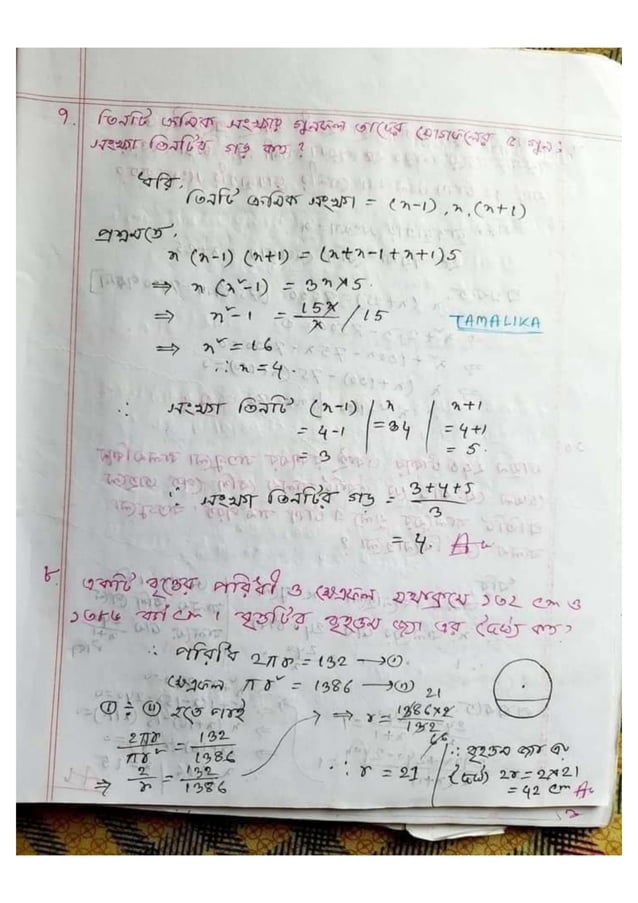 ৭. তিনটি ক্রমিক সংখ্যার গুনফল তাদের যোগফলের ৫ গুন।
সংখ্যা তিনটির গড় কত?
ধরি,
তিনটি ক্রমিক সংখ্যা = (x-1), x, (x+1)
প্রশ্নমতে,
x (x-1) (x+1) = (x+x-1+x+1)5
⇒ x (x²-1) = 3x×5
⇒ x²-1 = 15x/x /15
TAMALIKA
⇒ x² = 16
∴ x = 4.
∴ সংখ্যা তিনটি (x-1) | x | x+1
= 4-1 | = 34 | = 4+1
= 3 | = 5.
∴ সংখ্যা তিনটির গড় = 3+4+5/3
= 4. A
৮. একটি বৃত্তের পরিধী ও ক্ষেত্রফল যথাক্রমে ১৩২ cm ও
১৩৮৬ বর্গ cm। বৃত্তটির বৃহত্তম জ্যা এর দৈর্ঘ্য কত?
∴ পরিধি 2πr = 132 → ①
ক্ষেত্রফল πr² = 1386 → ②
① ÷ ⑪ হতে পারই
2πr/πr² = 132/1386
⇒ 2/r = 132/1386
⇒ r = 1386×2/132
21
66
∴ r = 21
∴ বৃহত্তম জ্যা এর
দৈর্ঘ্য 2r = 2×21
= 42 cm A